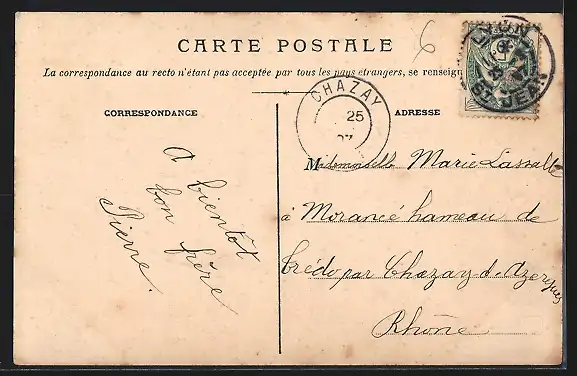 CARTE POSTALE
6
La correspondance au recto n'étant pas acceptée par tous les pays étrangers, se renseign
LYON
ST JEAN
CHAZAY
25
07
CORRESPONDANCE
ADRESSE
A bientôt
bon frère
Pierre.
Mademoiselle Marie Lassalle
à Morancé hameau de
par Chazay d'Azergues
Rhône